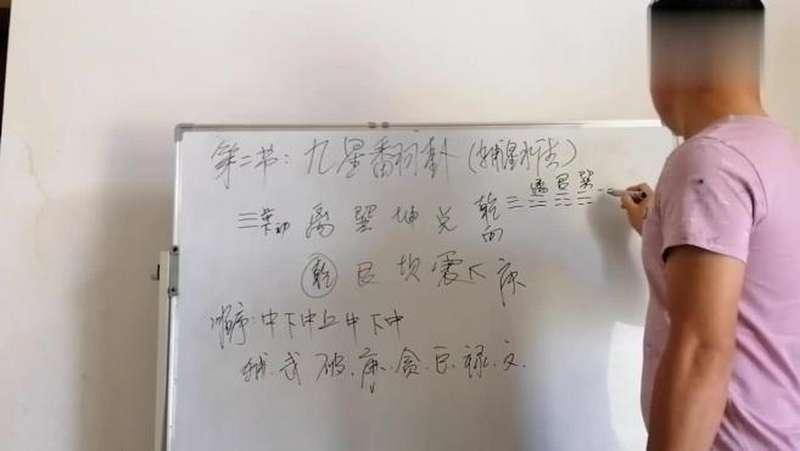 第二节：九星翻卦(辅星水法)
离 巽 坤 兑 乾
离 艮 巽
向
乾 艮 坎 震 廉
顺序：中下中上中下中
辅.武.破.廉.贪.巨.禄.文.